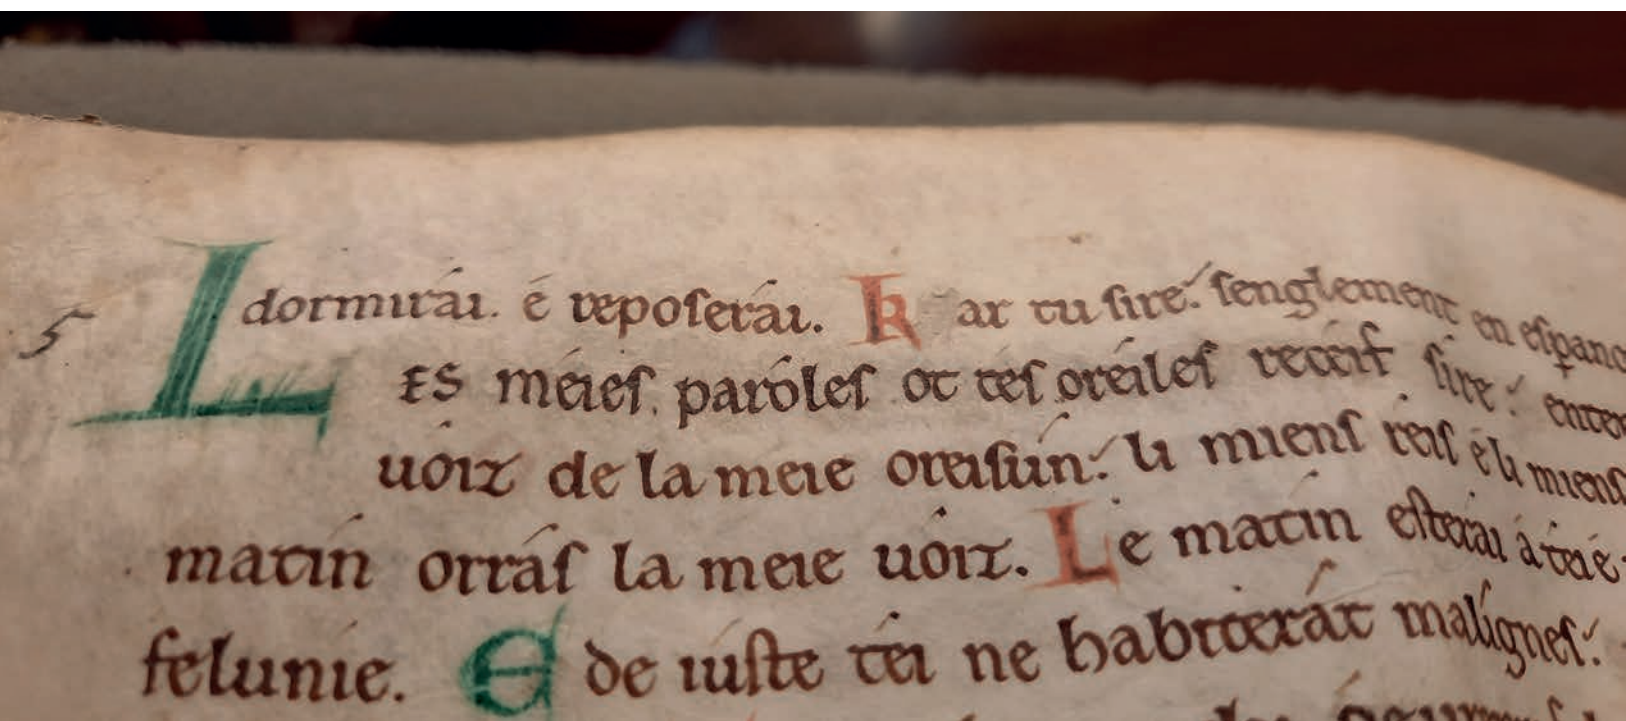 dormirái. é reposerái. Kar tu sire: senglement en
5 LES méies paróles ot tes oréiles receif sire:
uoiz de la meie oreisún: li miens réis é li miens
matín orrás la meie uóiz. Le matín esterai á téié
feluníe. E de iuste téi ne habiterát malígnes: